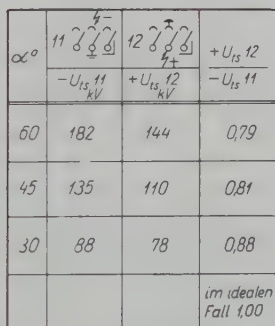 α° 11 12 +U_ts 12
−U_ts 11 kV +U_ts 12 kV −U_ts 11
60 182 144 0,79
45 135 110 0,81
30 88 78 0,88
im idealen
Fall 1,00